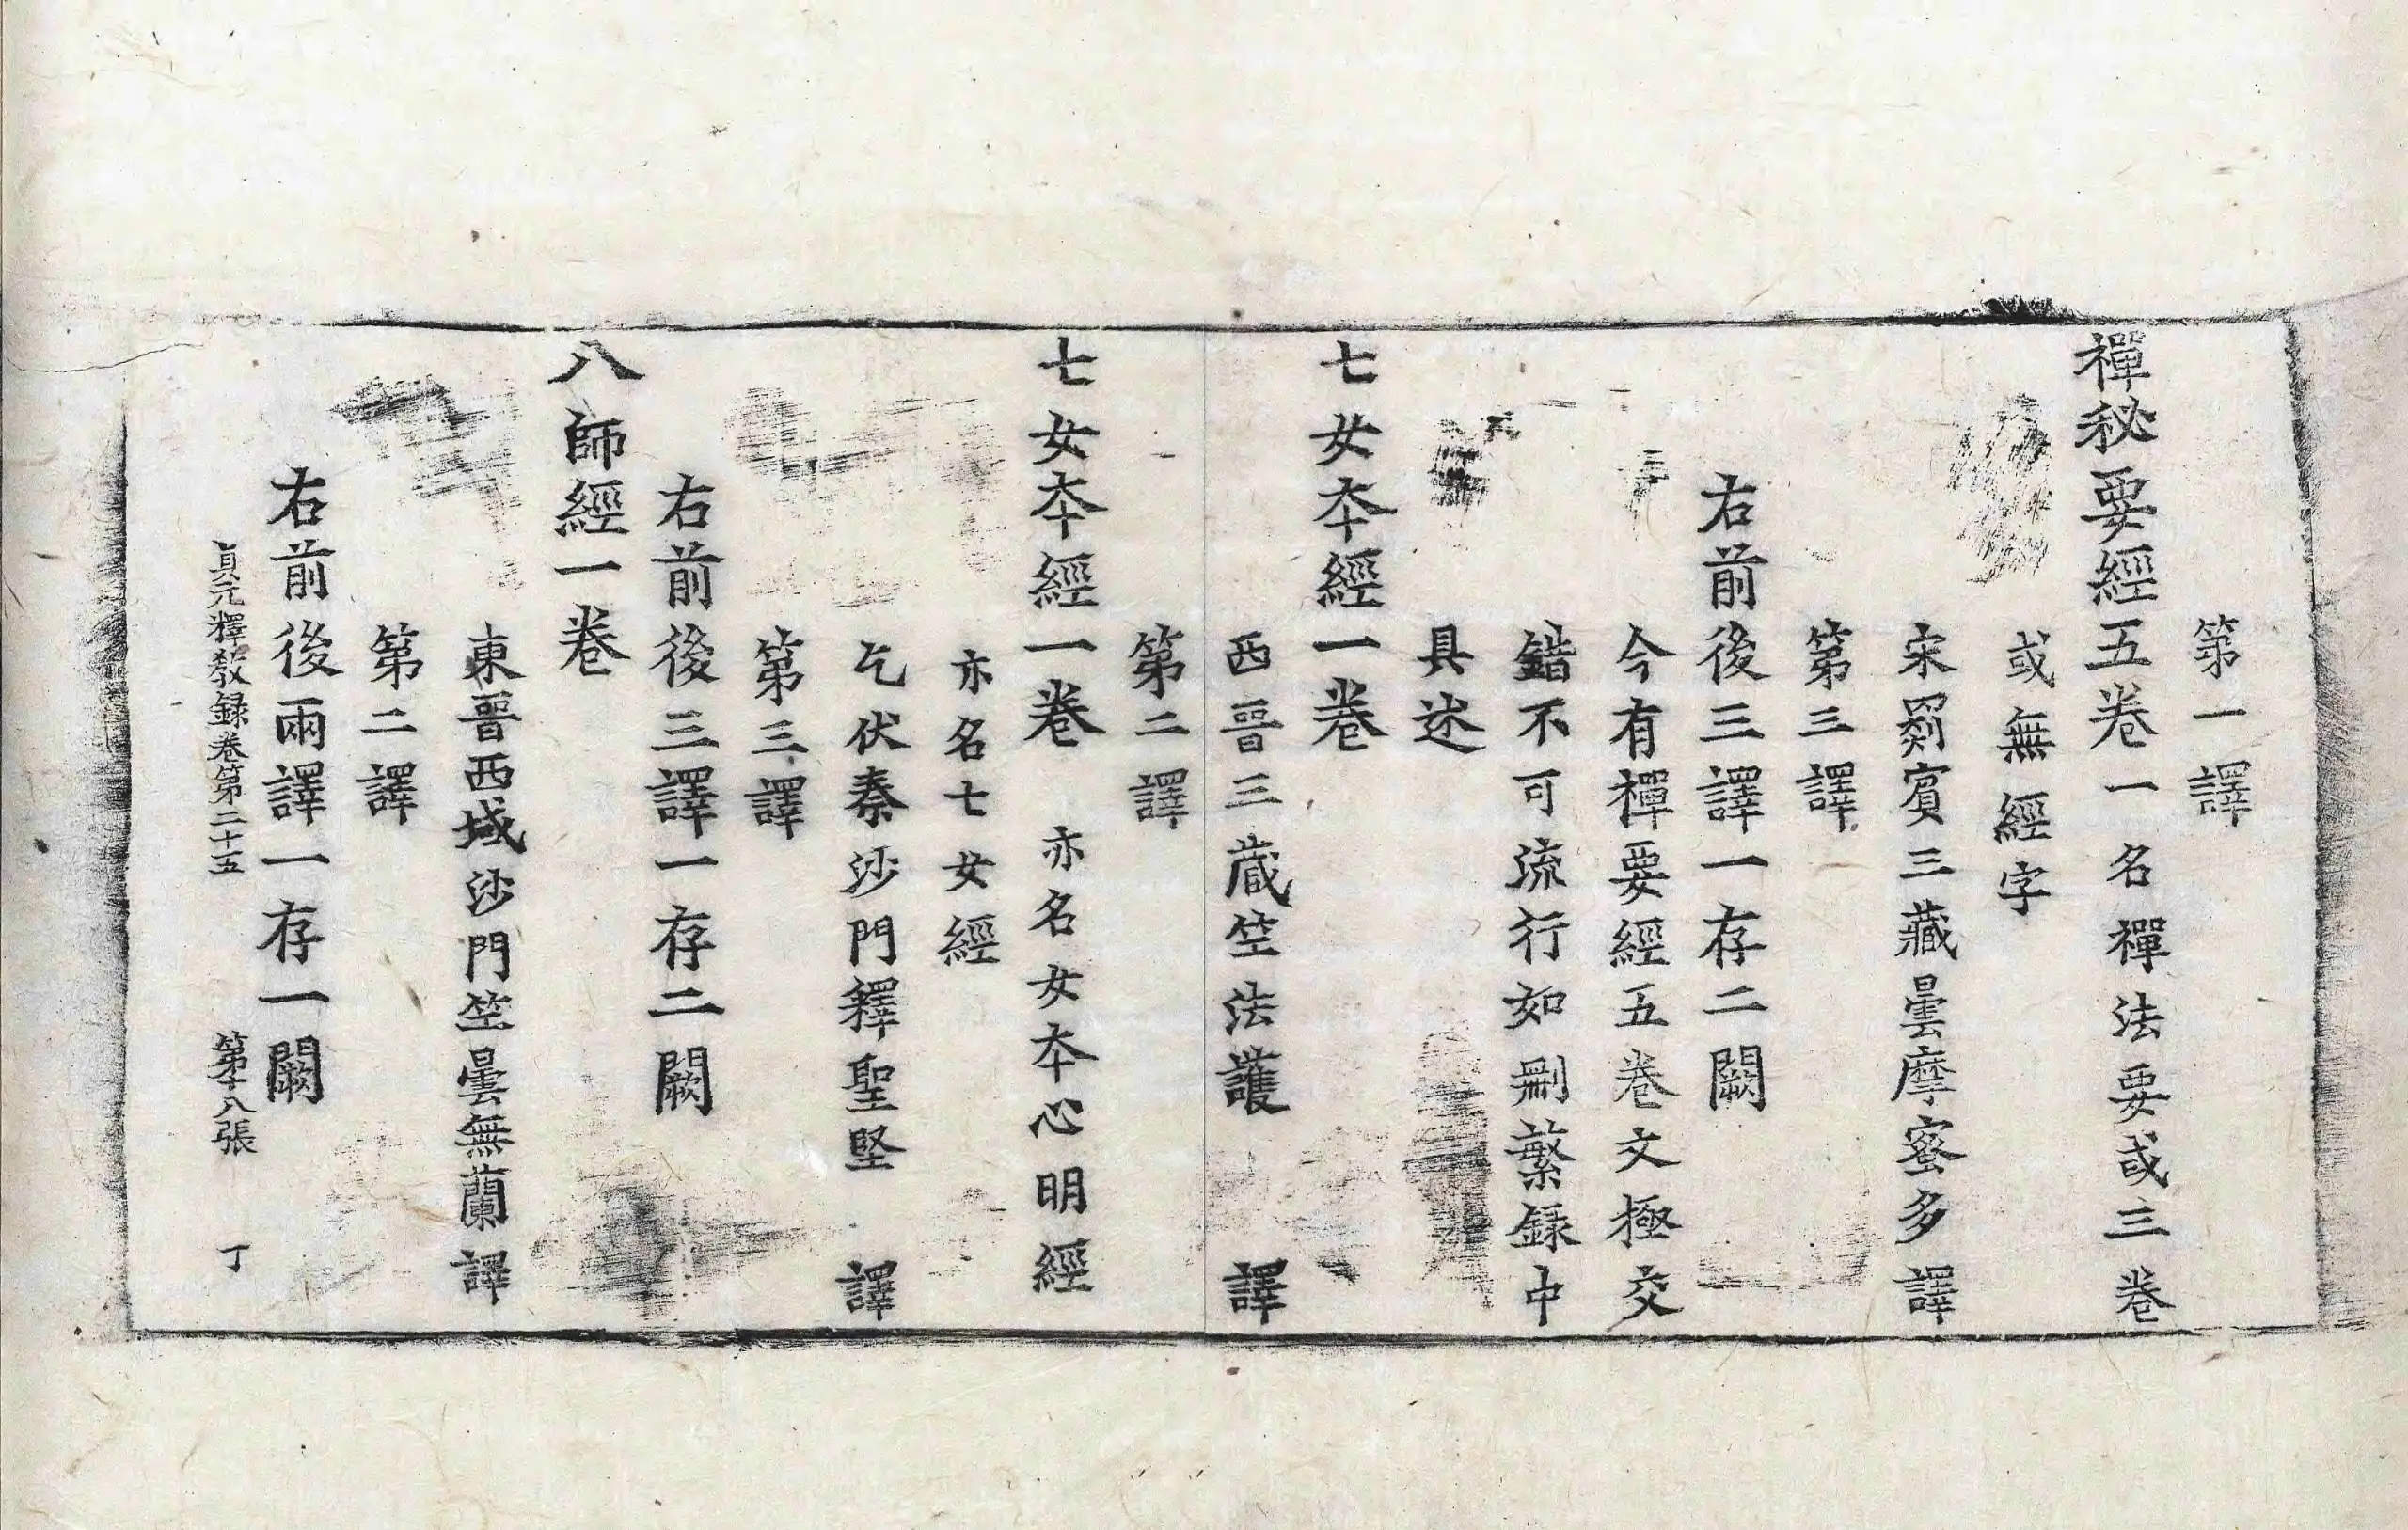 第一譯
禪秘要經五卷一名禪法要或三卷
或無經字
宋罽賓三藏曇摩蜜多譯
第三譯
右前後三譯一存二闕
今有禪要經五卷文極交
錯不可流行如刪繁録中
具述
七女本經一卷
西晉三藏竺法護譯
第二譯
七女本經一卷亦名女本心明經
亦名七女經
乞伏秦沙門釋聖堅譯
第三譯
右前後三譯一存二闕
八師經一卷
東晉西域沙門竺曇無蘭譯
第二譯
右前後兩譯一存一闕
貞元釋教録卷第二十五 第十八張 丁